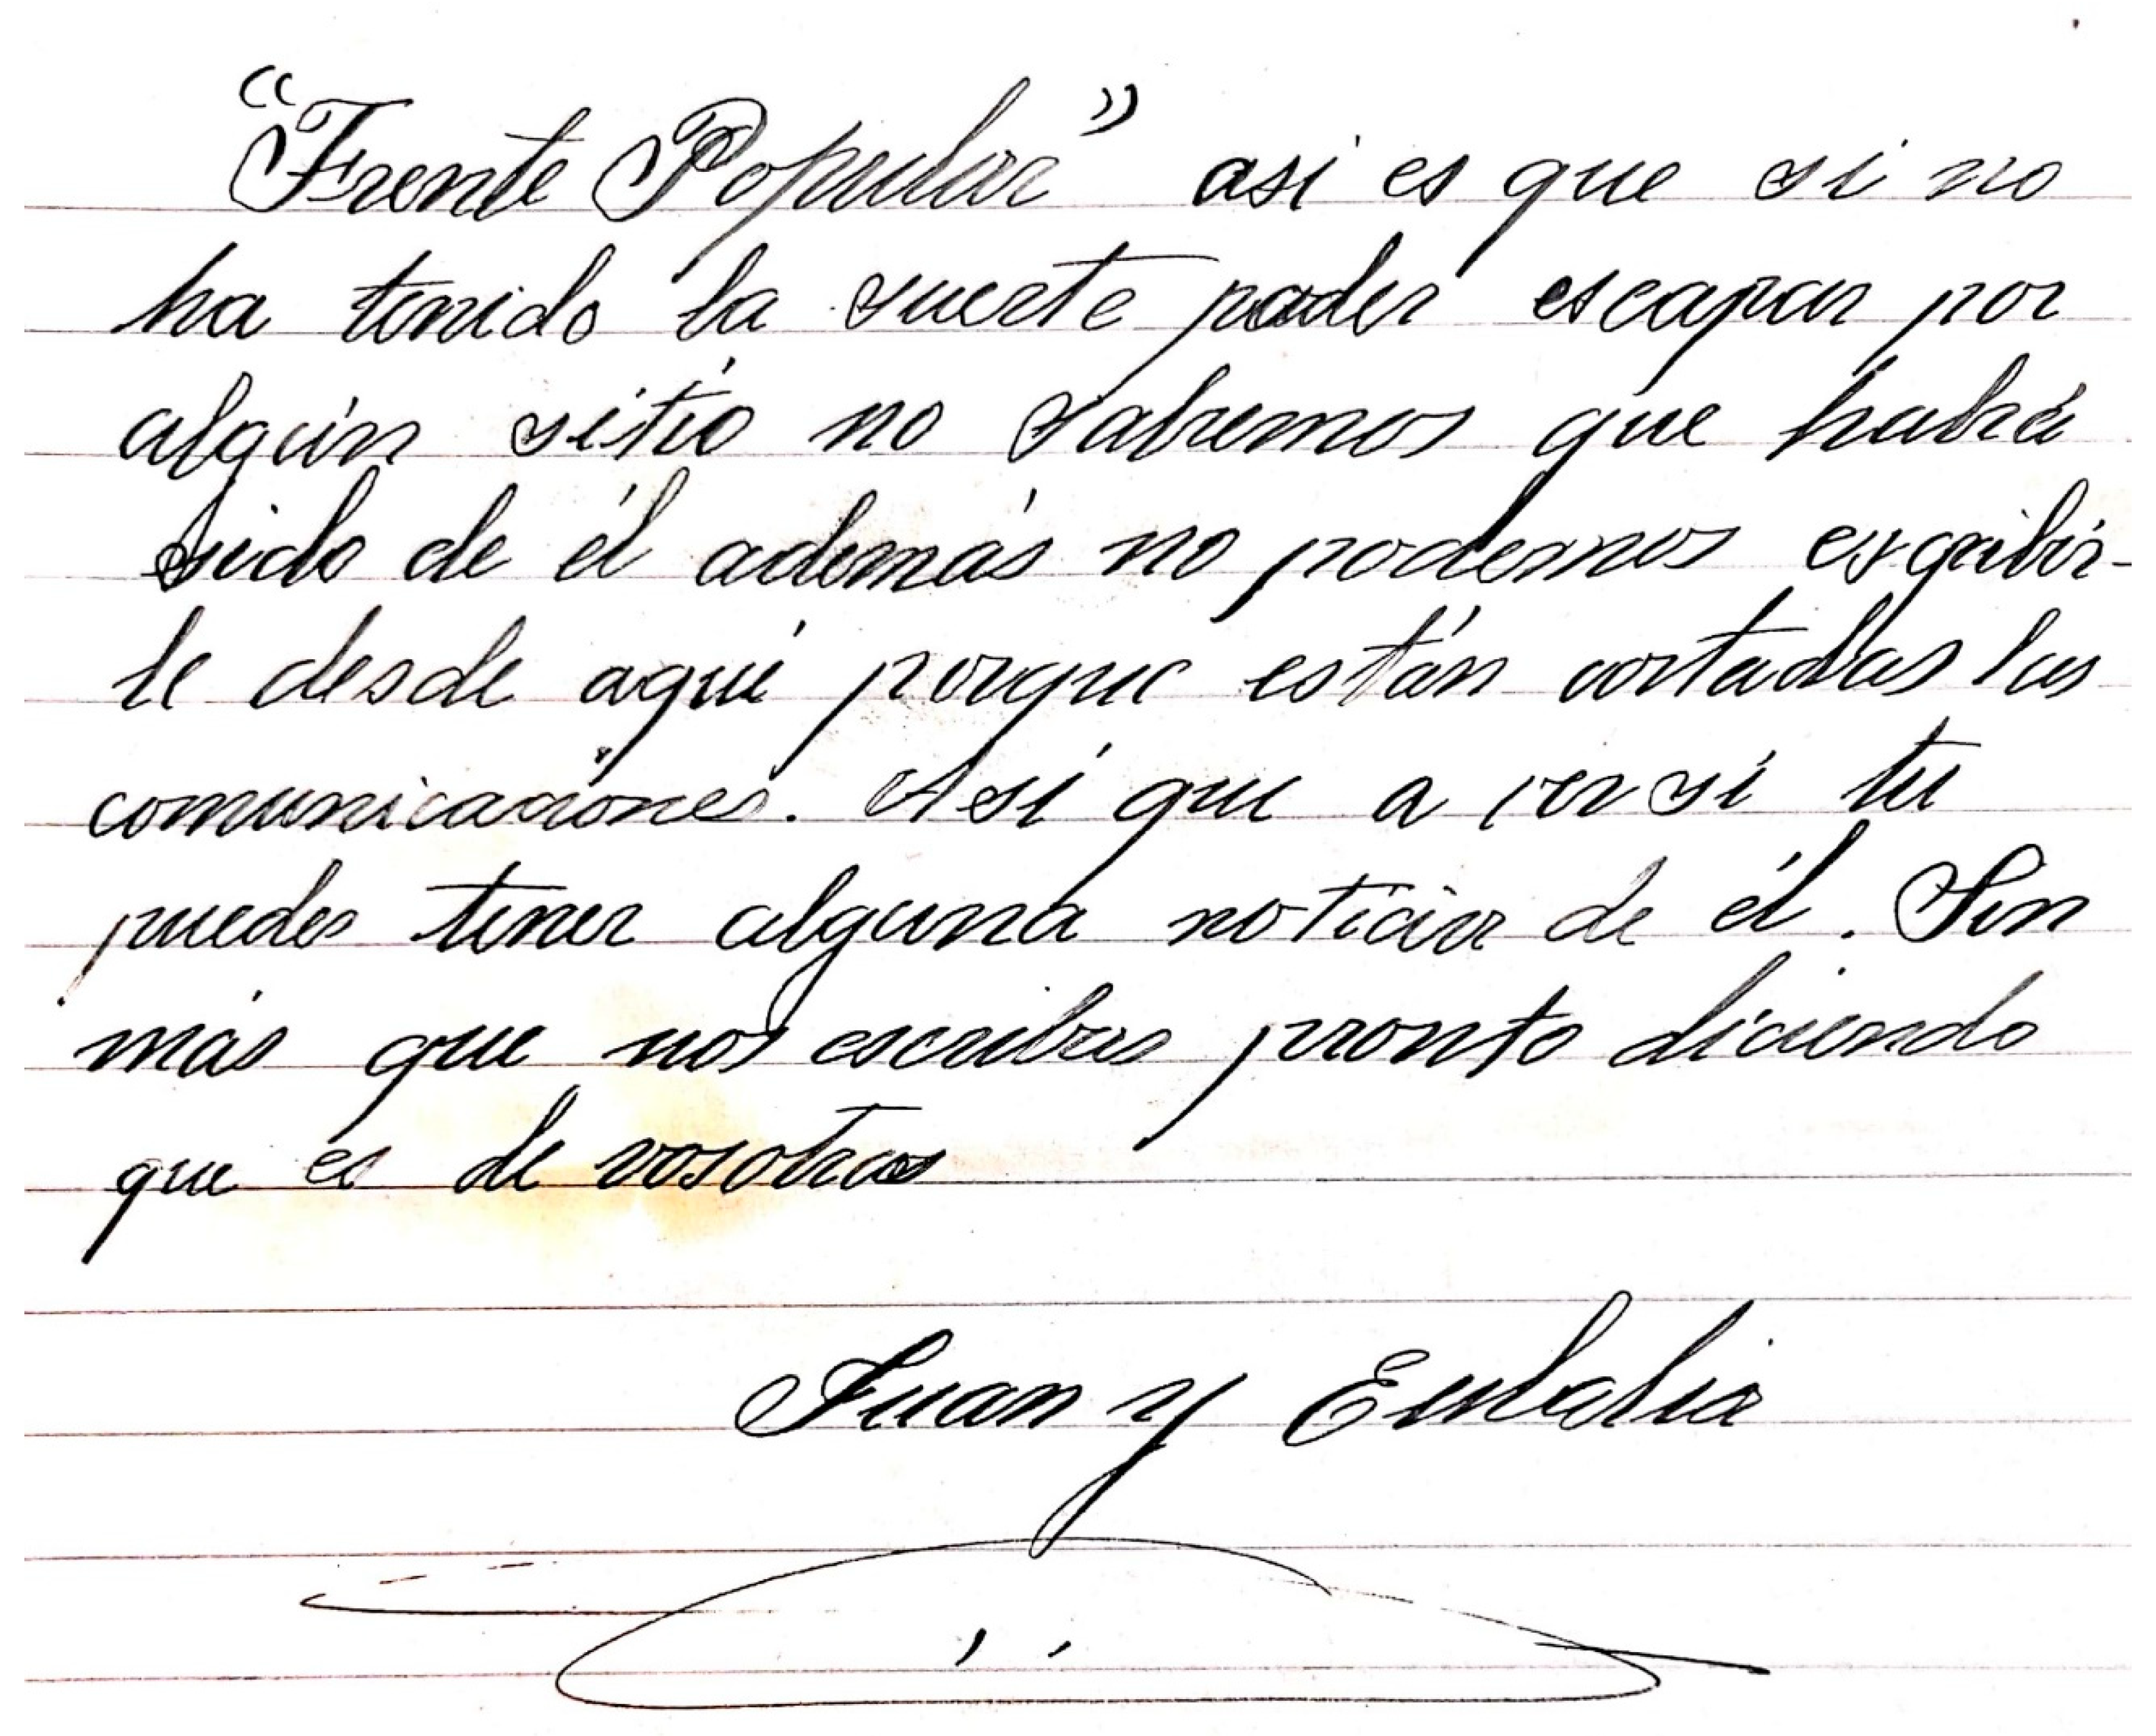 "Frente Popular" asi es que si no
ha tenido la suerte poder escapar por
algún sitio no sabemos que habrá
sido de él además no podemos escribir-
le desde aquí porque están cortadas las
comunicaciones. Así que a ver si tu
puedes tener alguna noticia de él. Sin
más que nos escribas pronto diciendo
que es de vosotros
Juan y Eulalia